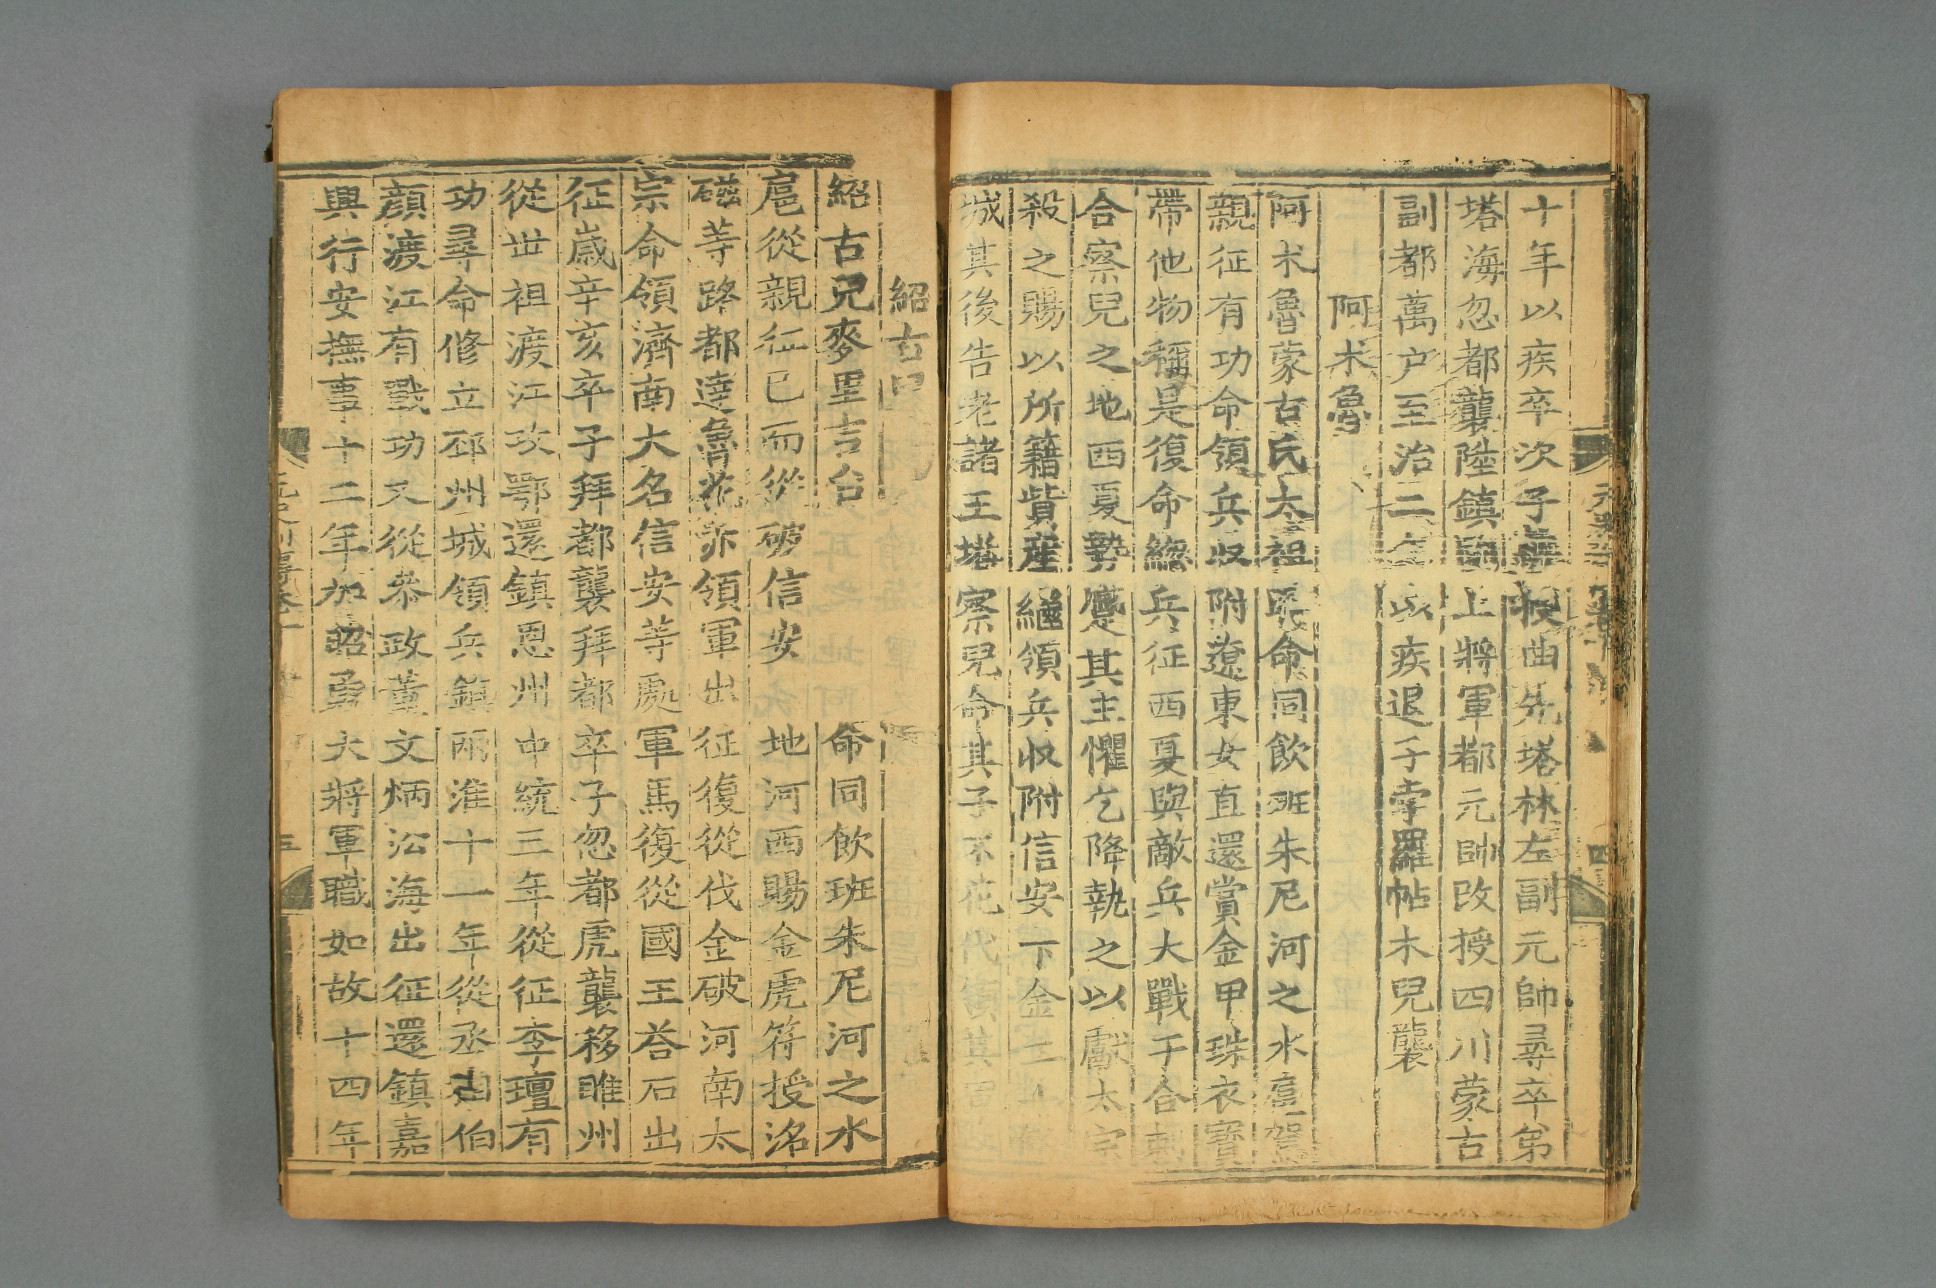 十年以疾卒次子重授曲先塔林左副元帥尋卒弟
塔海忽都襲陞鎮國上將軍都元帥改授四川蒙古
副都萬户至治二年以疾退子孛羅帖木兒襲
阿术魯
阿术魯蒙古氏太祖時命同飲班朱尼河之水扈駕
親征有功命領兵収附遼東女直還賞金甲珠衣寶
帶他物稱是復命總兵征西夏與敵兵大戰于合剌
合察兒之地西夏勢蹙其主懼乞降執之以獻太宗
殺之賜以所籍貲産繼領兵収附信安下金二十
城其後告老諸王塔察兒命其子不花代領其軍
紹古兒
紹古兒麥里吉台 命同飲班朱尼河之水
扈從親征已而從破信安 地河西賜金虎符授洺
磁等路都達魯花赤領軍出征復從伐金破河南太
宗命領濟南大名信安等處軍馬復從國王荅石出
征歲辛亥卒子拜都襲拜都卒子忽都虎襲移睢州
從世祖渡江攻鄂還鎮恩州中統三年從征李璮有
功尋命修立邳州城領兵鎮兩淮十一年從丞相伯
顏渡江有戰功又從叅政董文炳沿海出征還鎮嘉
興行安撫事十二年加昭勇大將軍職如故十四年